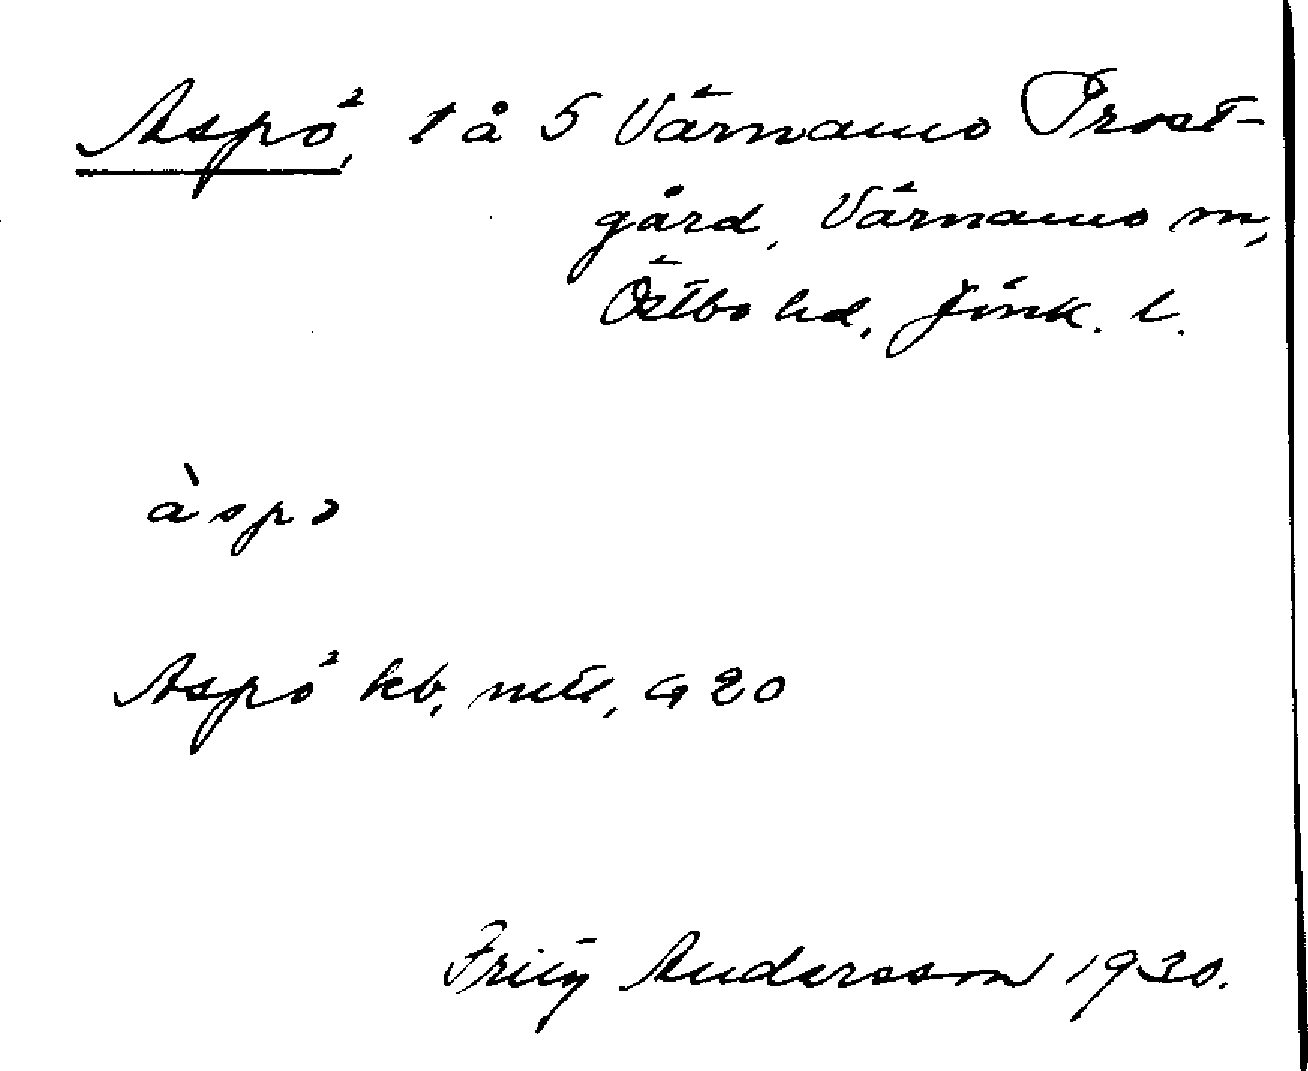 Aspö, 1 å 5 Värnamo Prost-
gård, Värnamo sn,
Östbo hd, Jönk. l.
àspɔ
Aspö kb, mtl, G 20
Fritz Andersson 1930.